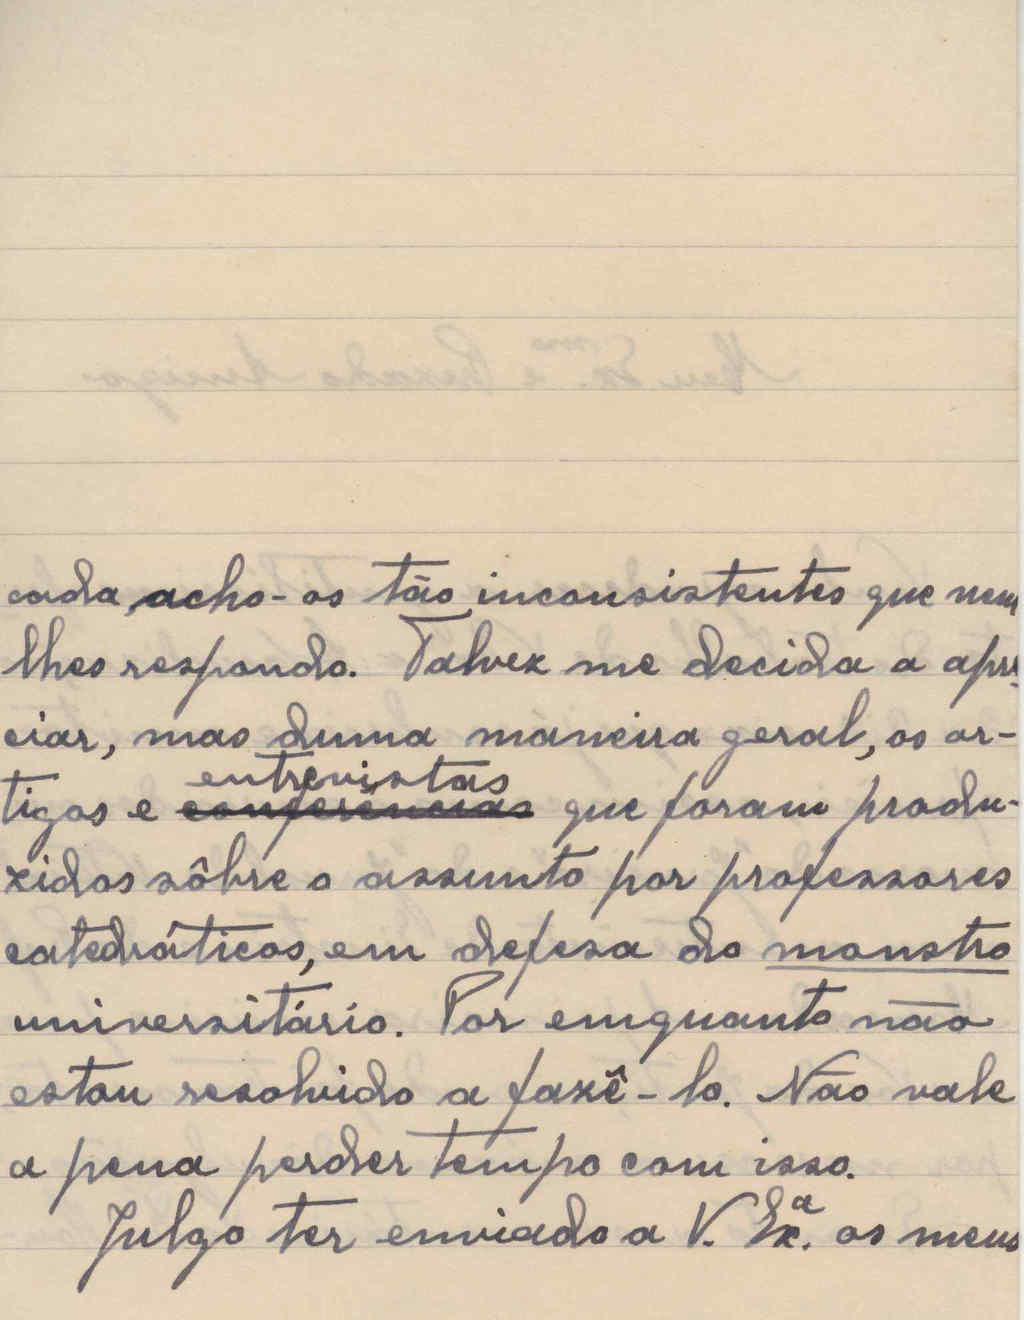 cada, acho-os tão inconsistentes que nem
lhes respondo. Talvez me decida a apre-
ciar, mas duma maneira geral, os ar-
entrevistas
tigos e conferências que foram produ-
zidos sôbre o assunto por professores
catedráticos, em defesa do monstro
universitário. Por emquanto não
estou resolvido a fazê-lo. Não vale
a pena perder tempo com isso.
Julgo ter enviado a V. Ex.ª os meus